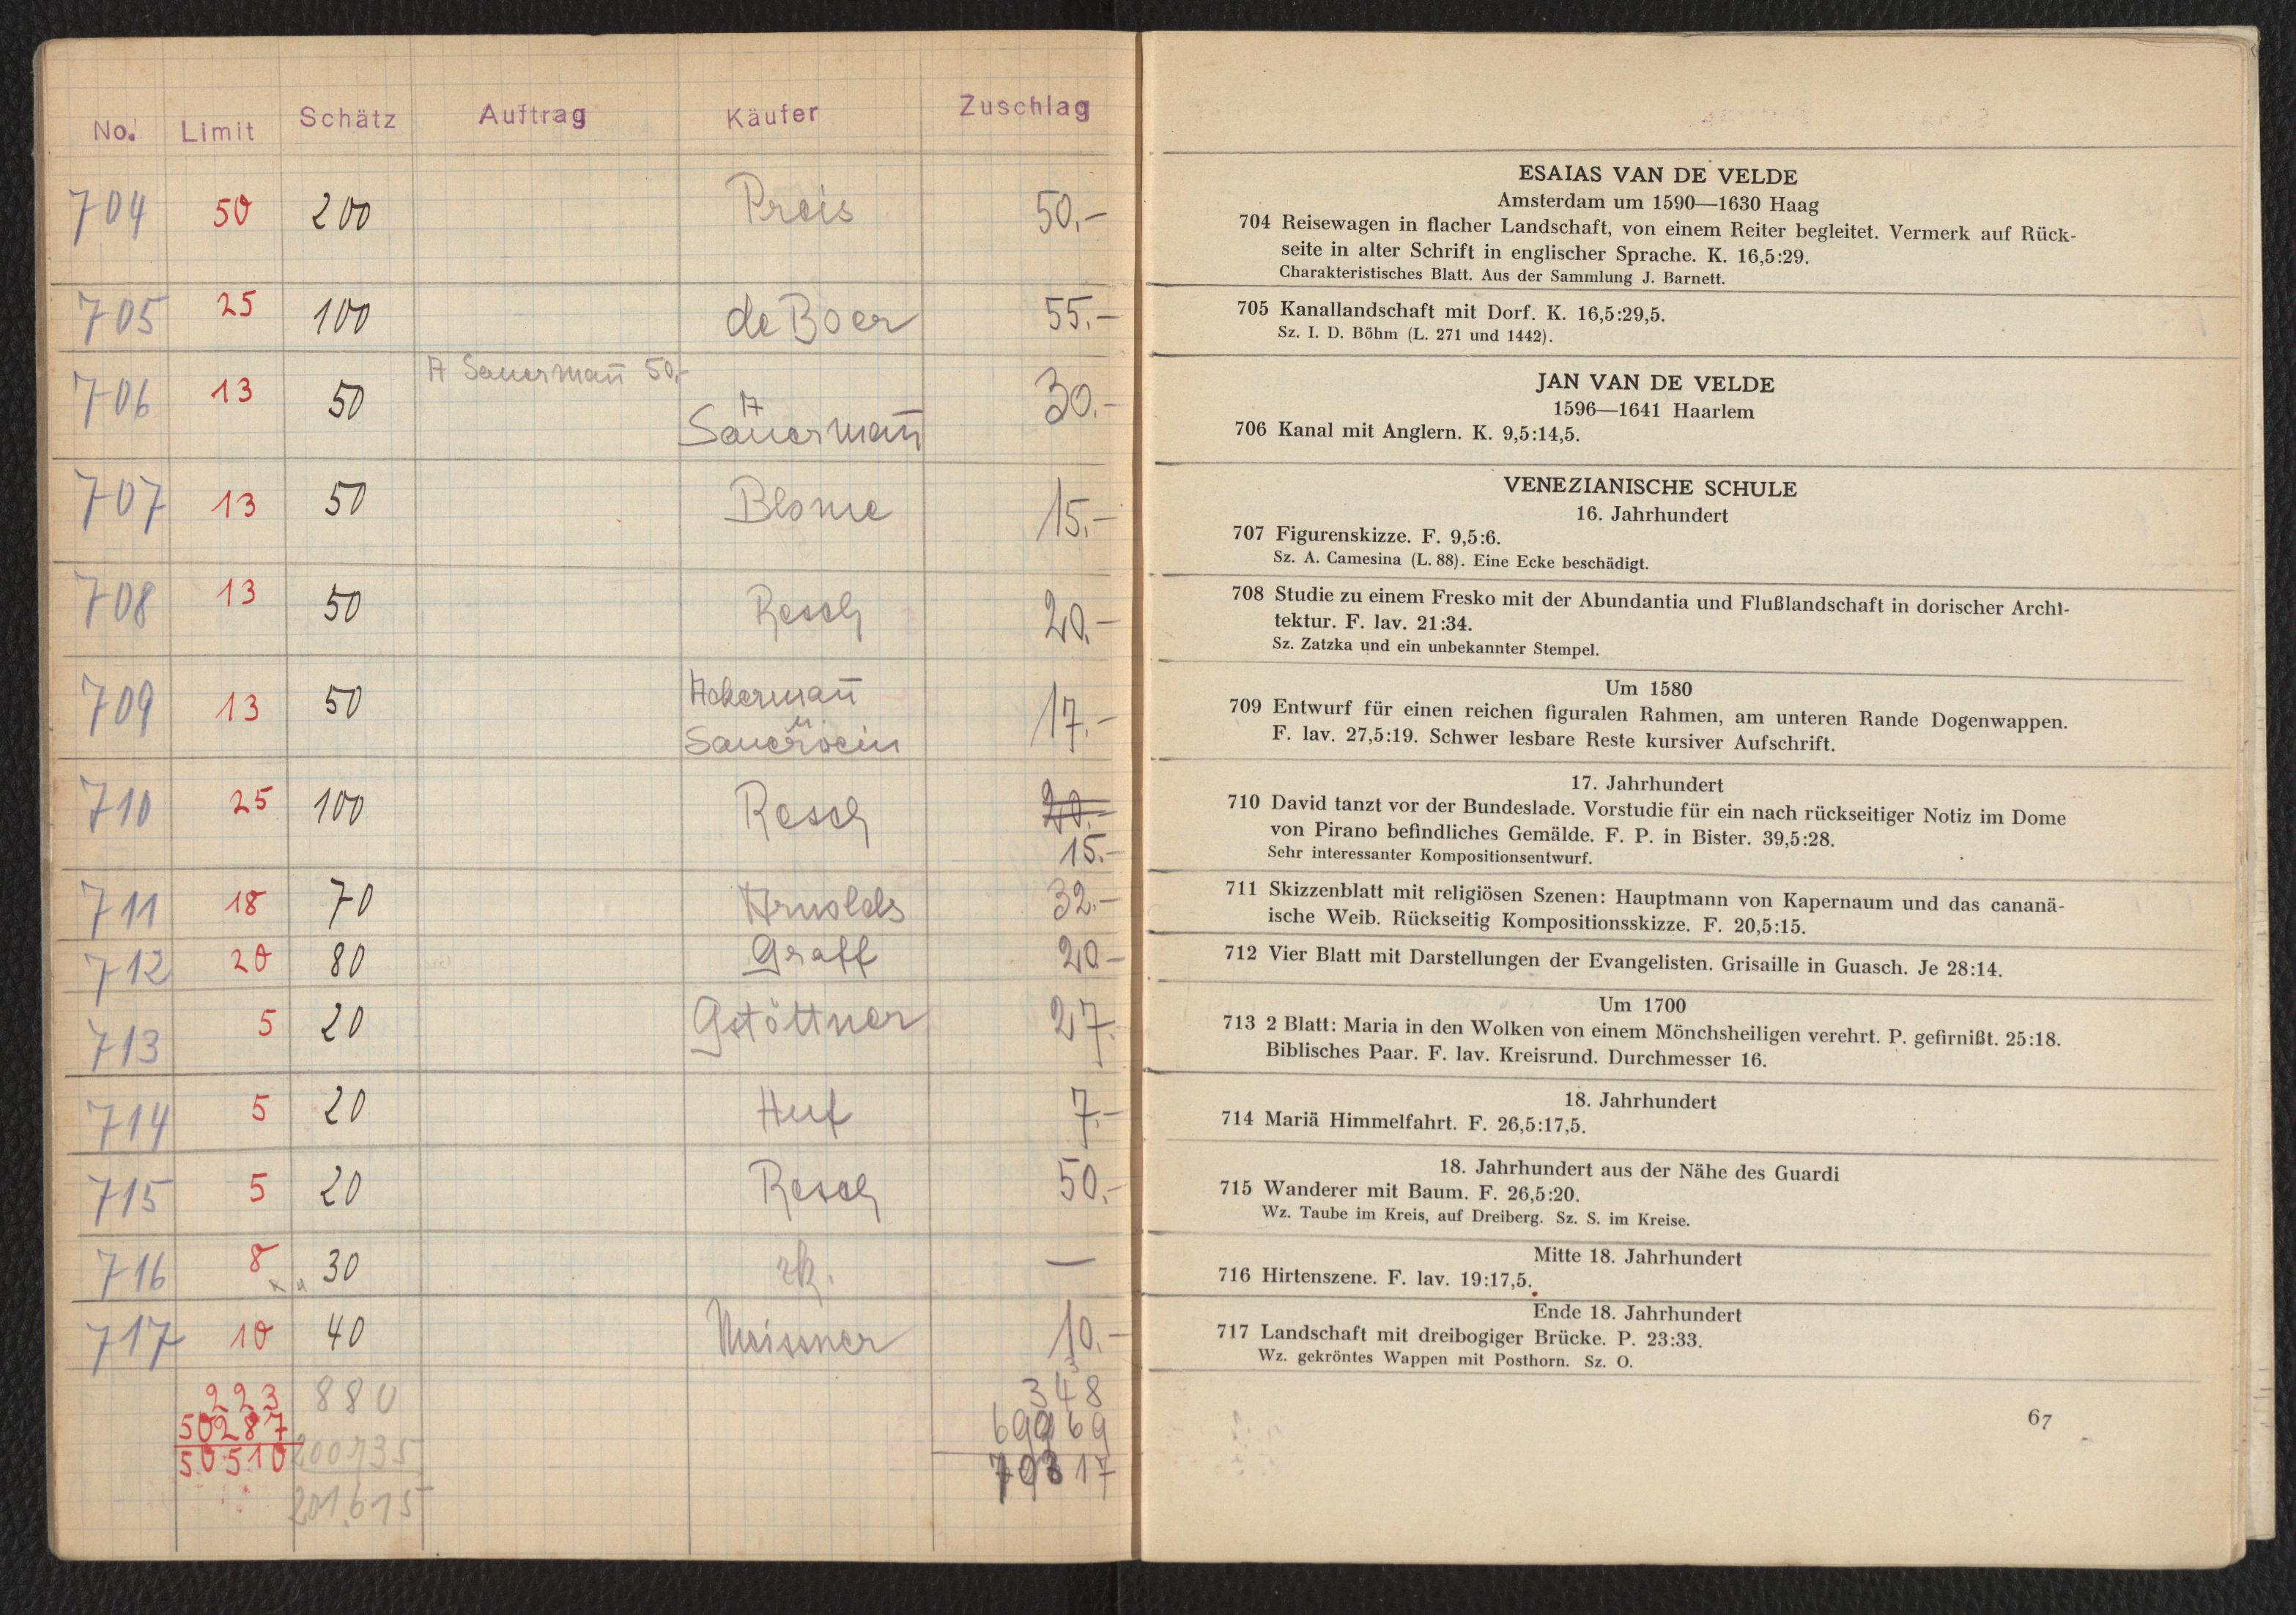 No. Limit Schätz Auftrag Käufer Zuschlag
704 50 200 Preis 50.-
705 25 100 de Boer 55.-
A Sauerman̄ 50,-
706 13 50 A 30.-
Sauerman̄
707 13 50 Blome 15.-
708 13 50 Resch 20.-
709 13 50 Ackerman̄ 17.-
u.
Sauerwein
710 25 100 Resch 20.-
15.-
711 18 70 Arnolds 32.-
712 20 80 Graff 20-
713 5 20 Gstöttner 27.
714 5 20 Huf 7.-
715 5 20 Resch 50.-
716 8 30 zk. —
717 10 40 Meissner 10.-
223 880 348
50287 200735 69969
50510 201.615 70317
ESAIAS VAN DE VELDE
Amsterdam um 1590—1630 Haag
704 Reisewagen in flacher Landschaft, von einem Reiter begleitet. Vermerk auf Rück-
seite in alter Schrift in englischer Sprache. K. 16,5:29.
Charakteristisches Blatt. Aus der Sammlung J. Barnett.
705 Kanallandschaft mit Dorf. K. 16,5:29,5.
Sz. I. D. Böhm (L. 271 und 1442).
JAN VAN DE VELDE
1596—1641 Haarlem
706 Kanal mit Anglern. K. 9,5:14,5.
VENEZIANISCHE SCHULE
16. Jahrhundert
707 Figurenskizze. F. 9,5:6.
Sz. A. Camesina (L. 88). Eine Ecke beschädigt.
708 Studie zu einem Fresko mit der Abundantia und Flußlandschaft in dorischer Archi-
tektur. F. lav. 21:34.
Sz. Zatzka und ein unbekannter Stempel.
Um 1580
709 Entwurf für einen reichen figuralen Rahmen, am unteren Rande Dogenwappen.
F. lav. 27,5:19. Schwer lesbare Reste kursiver Aufschrift.
17. Jahrhundert
710 David tanzt vor der Bundeslade. Vorstudie für ein nach rückseitiger Notiz im Dome
von Pirano befindliches Gemälde. F. P. in Bister. 39,5:28.
Sehr interessanter Kompositionsentwurf.
711 Skizzenblatt mit religiösen Szenen: Hauptmann von Kapernaum und das cananä-
ische Weib. Rückseitig Kompositionsskizze. F. 20,5:15.
712 Vier Blatt mit Darstellungen der Evangelisten. Grisaille in Guasch. Je 28:14.
Um 1700
713 2 Blatt: Maria in den Wolken von einem Mönchsheiligen verehrt. P. gefirnißt. 25:18.
Biblisches Paar. F. lav. Kreisrund. Durchmesser 16.
18. Jahrhundert
714 Mariä Himmelfahrt. F. 26,5:17,5.
18. Jahrhundert aus der Nähe des Guardi
715 Wanderer mit Baum. F. 26,5:20.
Wz. Taube im Kreis, auf Dreiberg. Sz. S. im Kreise.
Mitte 18. Jahrhundert
716 Hirtenszene. F. lav. 19:17,5.
Ende 18. Jahrhundert
717 Landschaft mit dreibogiger Brücke. P. 23:33.
Wz. gekröntes Wappen mit Posthorn. Sz. O.
67